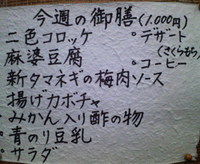 今週の御膳(1,000円)
二色コロッケ
・デザート
(さくらもち)
麻婆豆腐
・コーヒー
新タマネギの梅肉ソース
揚げカボチャ
みかん入り酢の物
青のり豆乳
サラダ